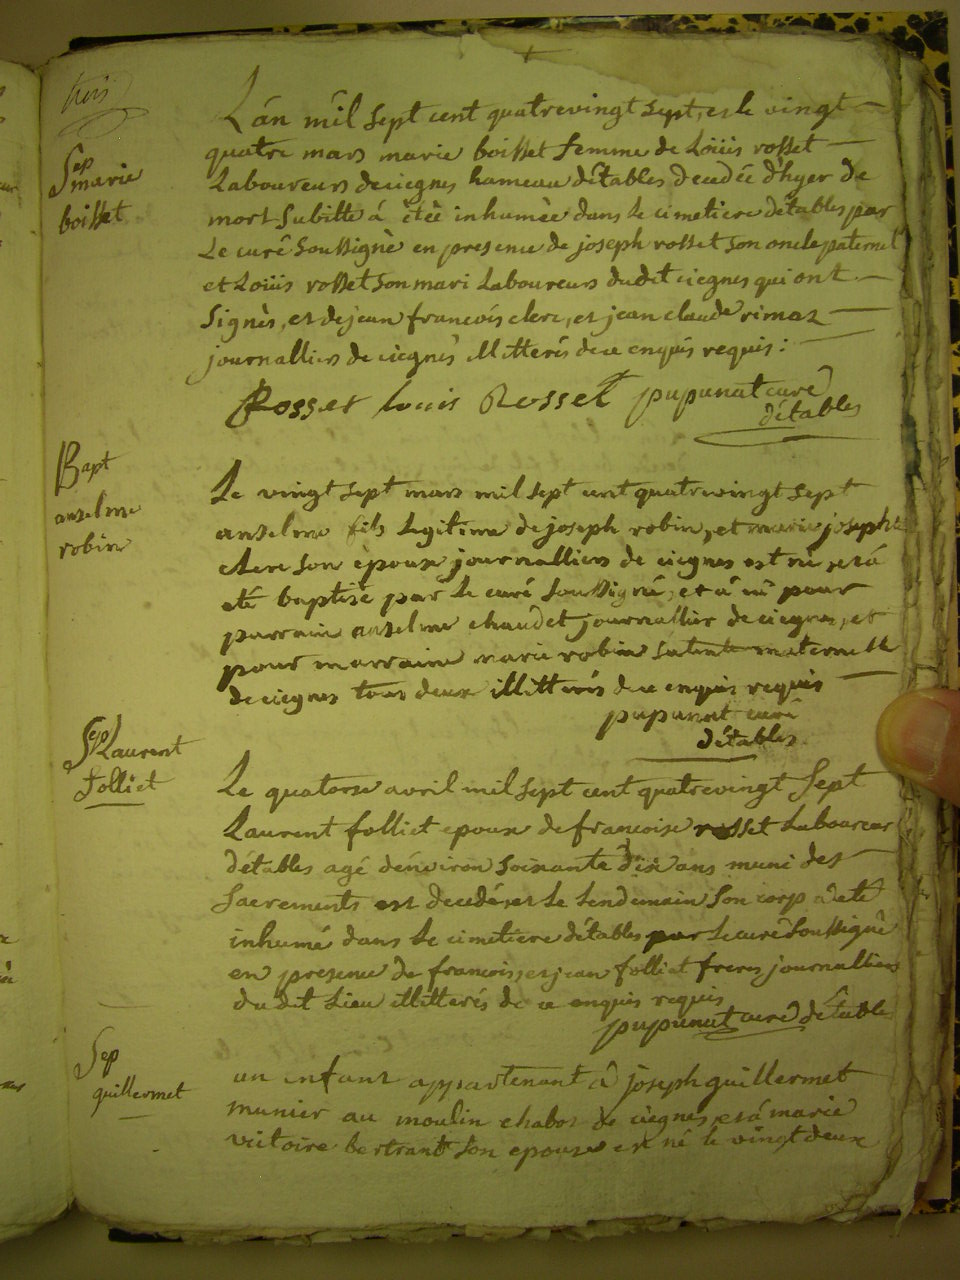 trois
Sep
marie
boisset
Lán mil sept cent quatrevingt sept, et le vingt
quatre mars marie boisset femme de Loüis rosset
Laboureurs de ciegnes hameau détables decedéé d'hyer de
mort subitte á ètèè inhumèe dans le cimetiere détables par
Le curé soussignè en presence de joseph rosset son oncle paternel
et Loüis rosset son mari Laboureurs dudit ciegnes qui ont
signès, et de jean francois clerc, et jean claude rimaz
journalliers de ciegnes illitterés de ce enquis requis :
Rosset Louis Rosset pupunat curé
détables
Bapt
anselme
robin
Le vingt sept mars mil sept cent quatrevingt sept
anselme fils legitime de joseph robin, et marie josephte
clerc son epouse journalliers de ciegnes est né, et á
eté baptisé par le curé soussigné, et á eû pour
parrain anselme chaudet journallier de ciegnes, et
pour marraine marie robin sa tante maternelle
de ciegnes tous deux illitterés de ce enquis requis
pupunat curé
détables
Sep Laurent
folliet
Le quatorse avril mil sept cent quatrevingt sept
Laurent folliet epoux de francoise rosset Laboureur
détables agé dénviron soixante dix ans muni des
sacrements est decedé, et le lendemain son corp á eté
inhumé dans le cimetiere détables par le curé soussigné
en presence de francois, et jean folliet freres journalliers
du dit lieu illitterés de ce enquis requis
pupunat curé détables
Sep
guillermet
un enfant appartenant á joseph guillermet
munier au moulin chabot de ciegnes, et á marie
victoire bertrand son epouse est né le vingt deux